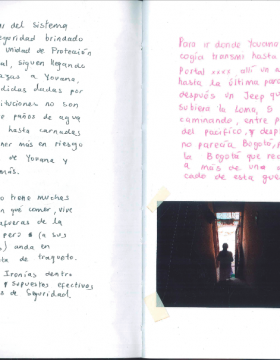 del sistema
seguridad brindado
unidad de Protección
siguen llegando
a Yovana.
dadas por
no son
paños de agua
hasta carnadas
más en riesgo
de Yovana y
más.
no tiene muchas
qué comer, vive
afueras de la
pero (a sus
anda en
de traqueto.
Ironías dentro
y supuestos efectivos
de Seguridad.
Para ir donde Yovana
cogía transmi hasta
Portal xxxx, allí va a
hasta la última para
después un Jeep que
subiera la loma, 5
caminando, entre p
del pacífico, y desp
no parecía Bogotá,
la Bogotá que rec
a más de una
cado de esta gue